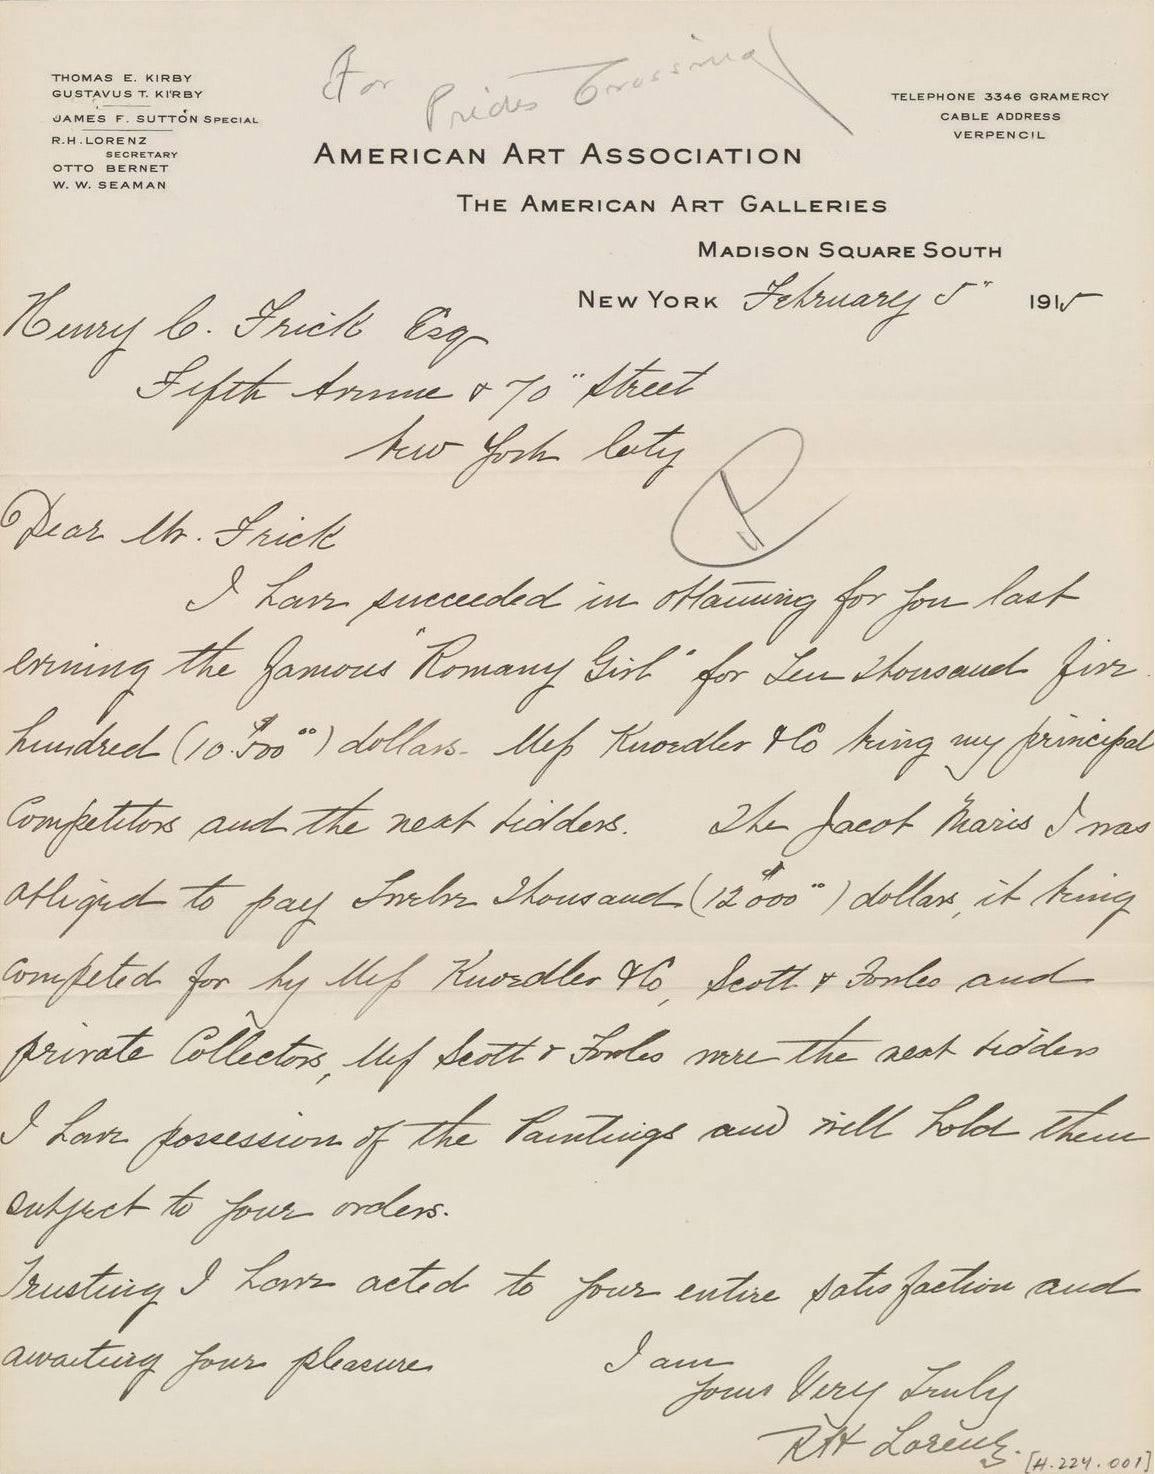 For Prides Crossing
THOMAS E. KIRBY
GUSTAVUS T. KIRBY
JAMES F. SUTTON SPECIAL
R.H. LORENZ
SECRETARY
OTTO BERNET
W. W. SEAMAN
TELEPHONE 3346 GRAMERCY
CABLE ADDRESS
VERPENCIL
AMERICAN ART ASSOCIATION
THE AMERICAN ART GALLERIES
MADISON SQUARE SOUTH
NEW YORK February 5" 1915
Henry C. Frick Esq
Fifth Avenue & 70" Street
New York City
Dear Mr. Frick
I have succeeded in obtaining for you last
evening the famous "Romany Girl" for Ten Thousand five
hundred (10.$500°°) dollars- Mess Knoedler & Co being my principal
Competitors and the next bidders. The Jacob Maris I was
obliged to pay Twelve Thousand ($12000°°) dollars, it being
competed for by Mess Knoedler & Co, Scott & Fowles and
private Collectors, Mess Scott & Fowles were the next bidders
I have possession of the Paintings and will hold them
subject to your orders.
Trusting I have acted to your entire satisfaction and
awaiting your pleasure I am
Yours Very Truly
RH Lorenz.
[H.224.001]